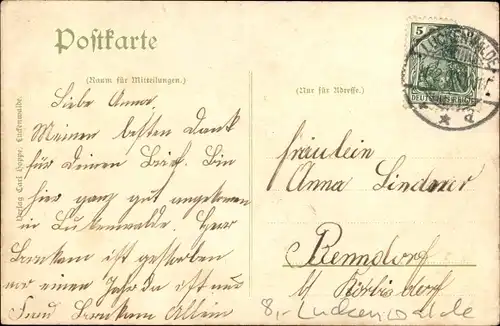 Postkarte
(Raum für Mitteilungen.)
(Nur für Adresse.)
Liebe Anna.
Meinen besten Dank
für Deinen Brief. Bin
hier ganz gut angekommen
in Luckenwalde. Herr
ist gestorben
vor einem Jahr da ist nur
Frau Allein
Fräulein
Anna Lindner
Benndorf
b/
8,- Luckenwalde
Verlag Carl Hoppe, Luckenwalde.
5
DEUTSCHES REICH
LUCKENWALDE